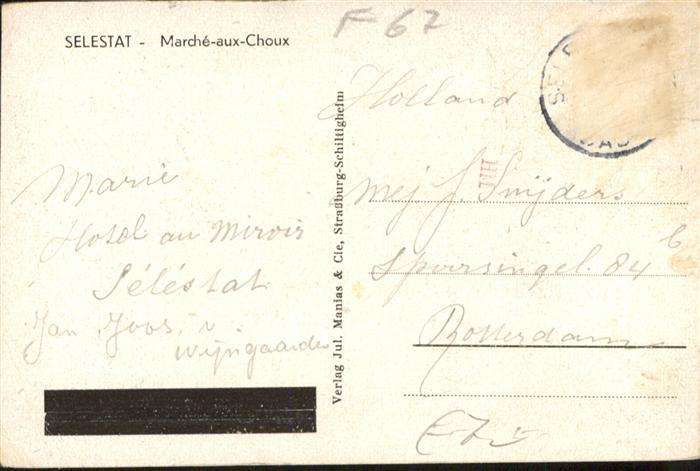 SELESTAT - Marché-aux-Choux
F 67
Holland
Marie
Hotel au Miroir
Séléstat
Jan Joos. v
Wijngaarden
Verlag Jul. Manias & Cie, Straßburg-Schiltigheim
HIL
mej J Snijders
Spoorsingel. 84 b
Rotterdam
SELE